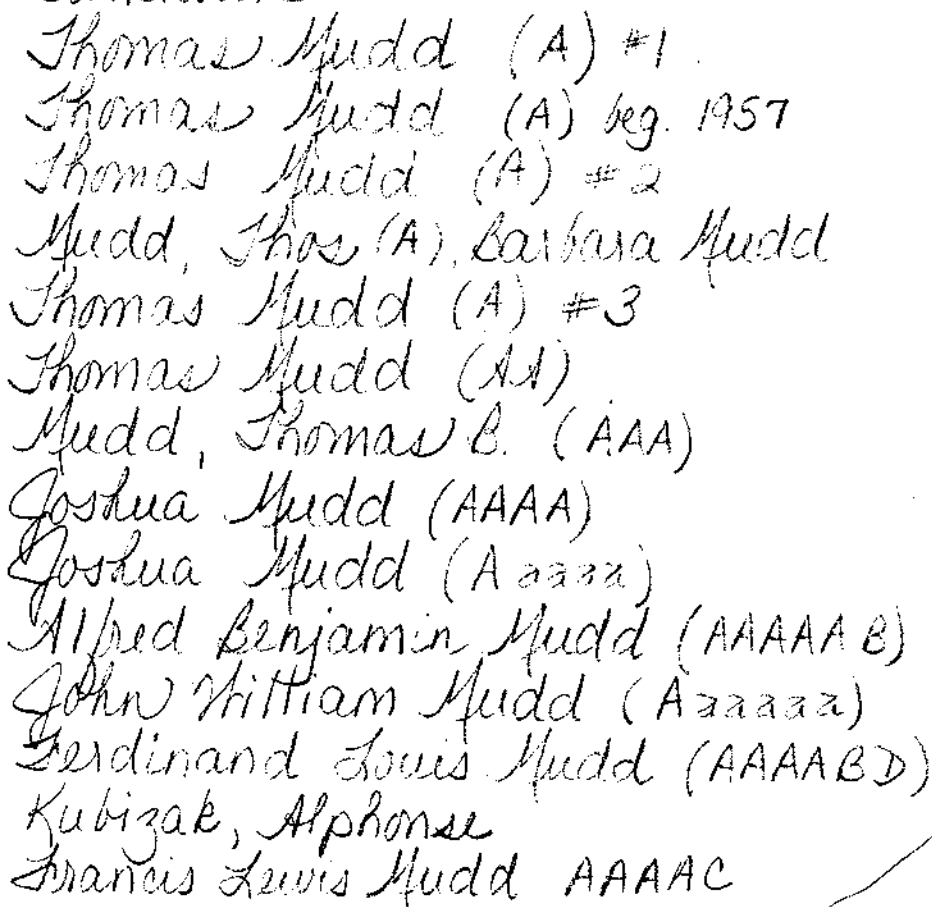 Thomas Mudd (A) #1
Thomas Mudd (A) beg. 1957
Thomas Mudd (A) #2
Mudd, Thos (A), Barbara Mudd
Thomas Mudd (A) #3
Thomas Mudd (AA)
Mudd, Thomas B. (AAA)
Joshua Mudd (AAAA)
Joshua Mudd (Aaaaa)
Alfred Benjamin Mudd (AAAAAB)
John William Mudd (Aaaaaa)
Ferdinand Louis Mudd (AAAABD)
Kubizak, Alphonse
Francis Lewis Mudd AAAAC